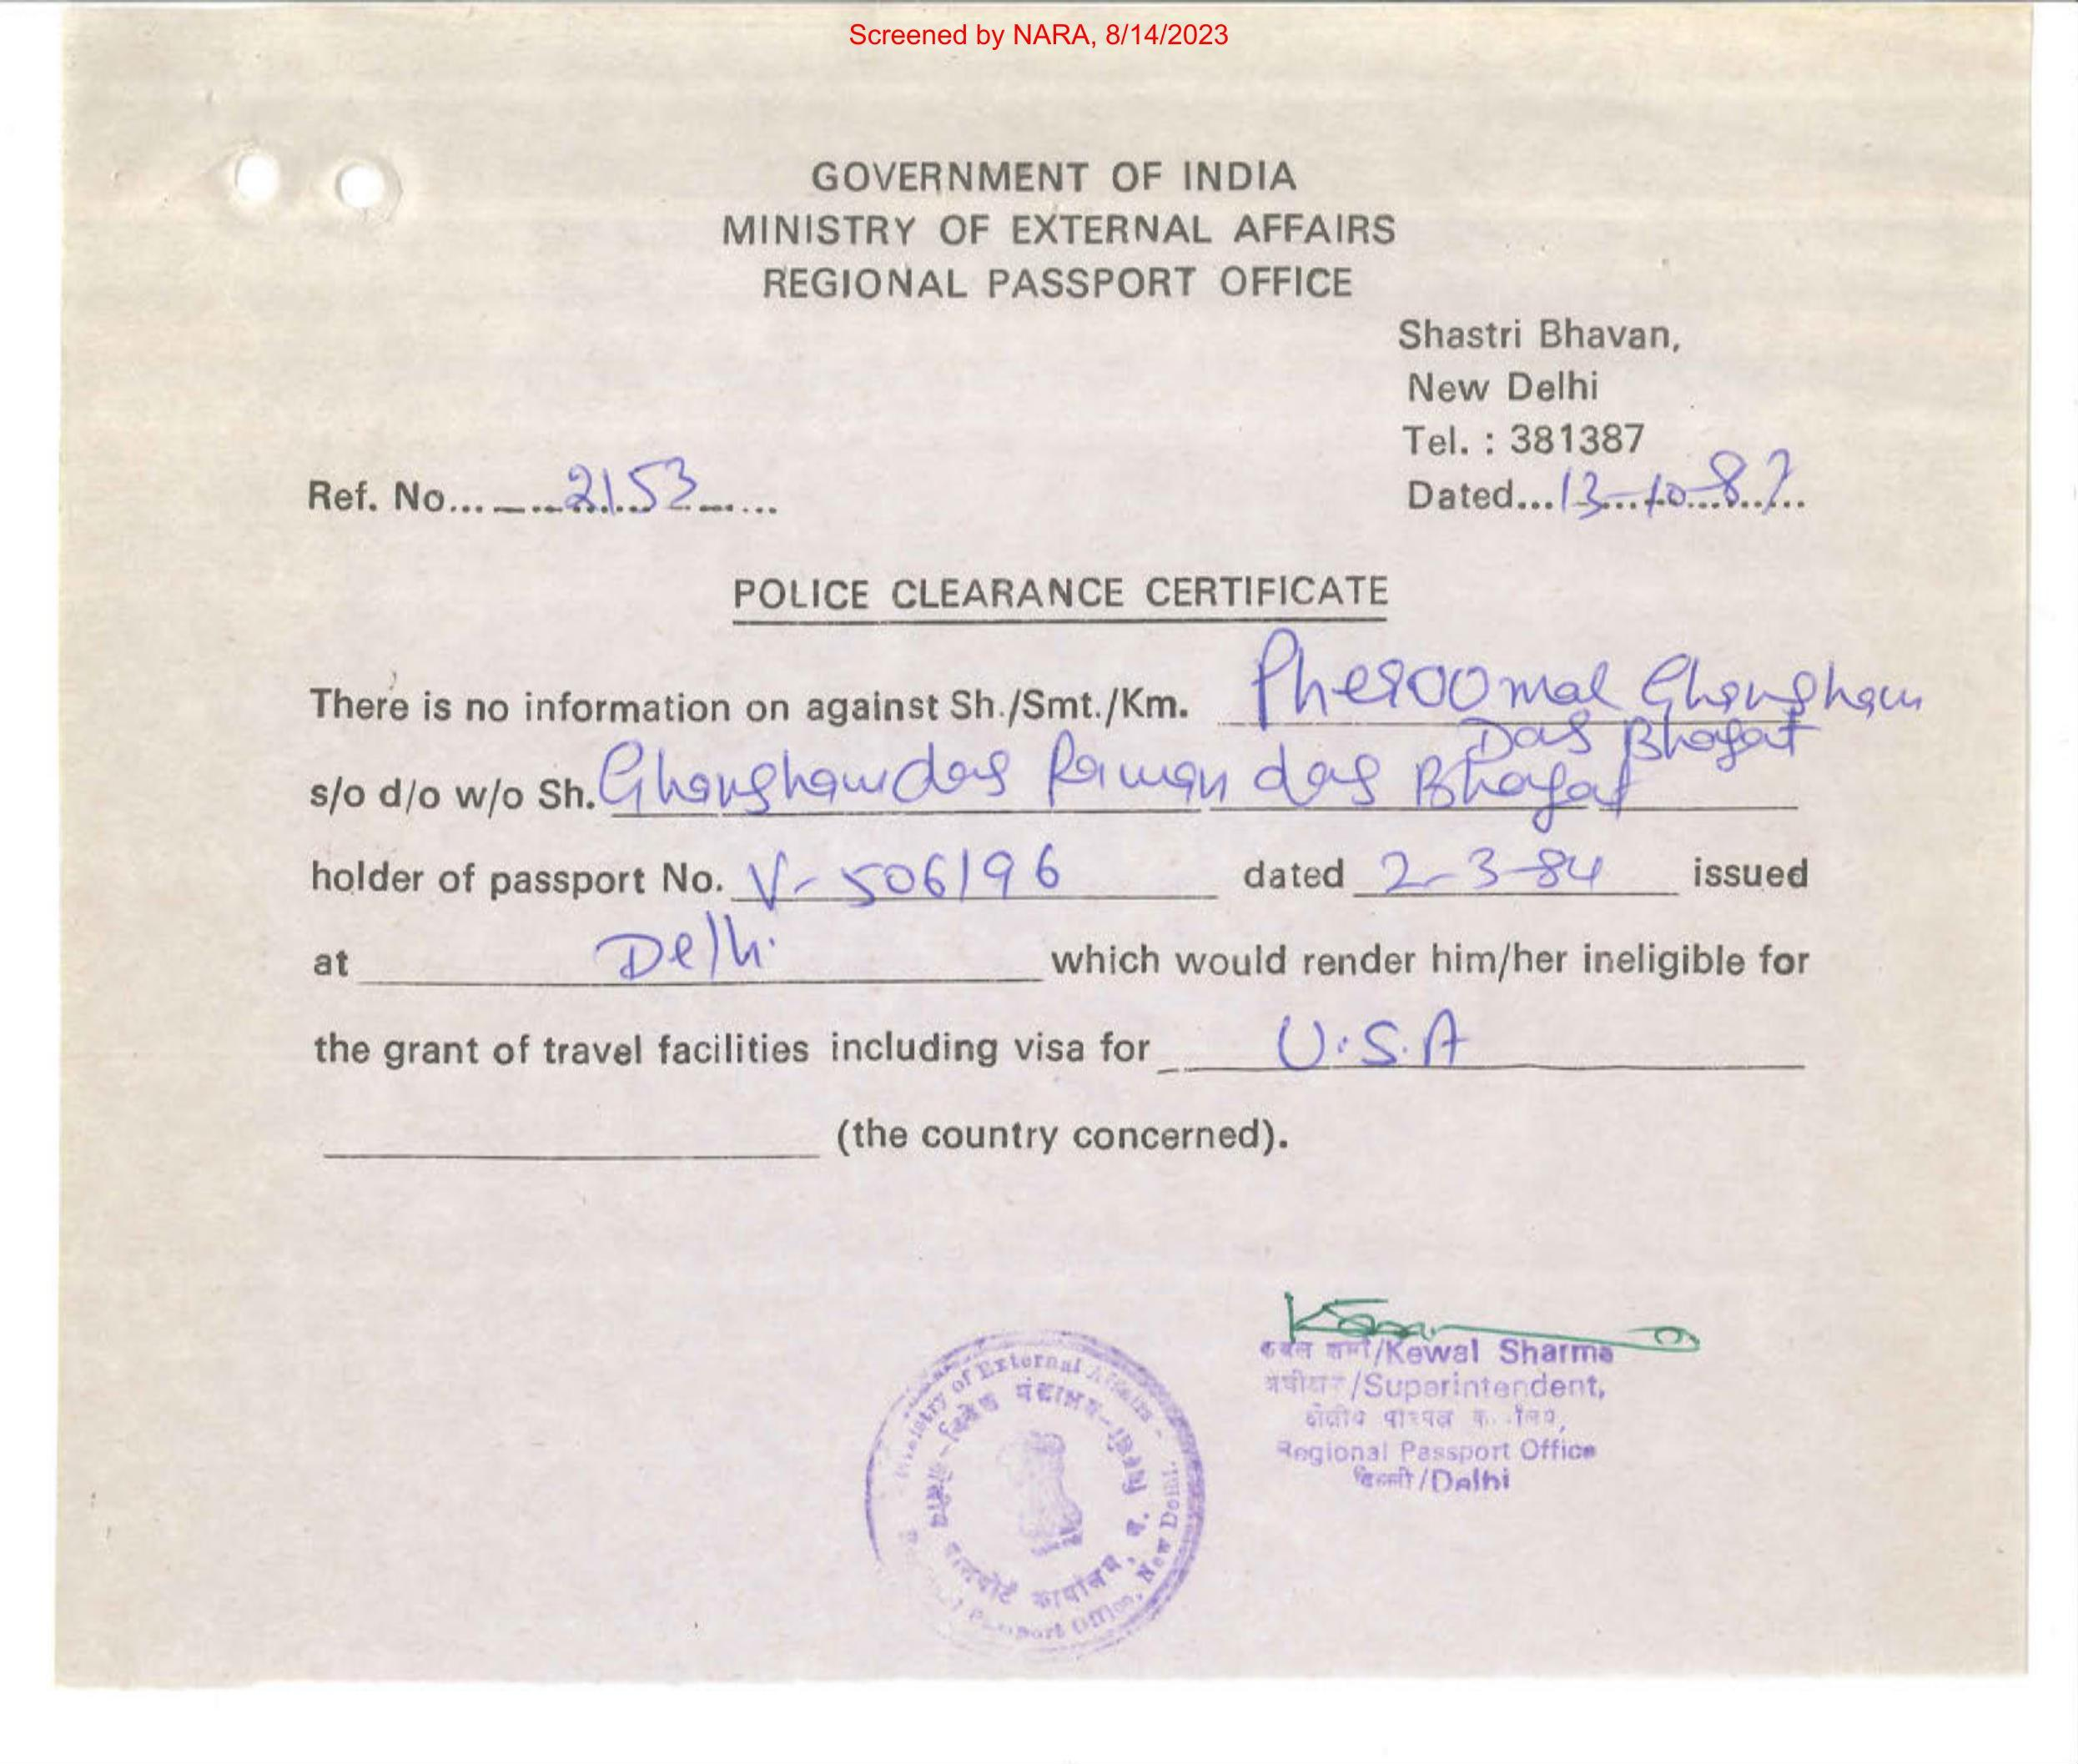 Screened by NARA, 8/14/2023
GOVERNMENT OF INDIA
MINISTRY OF EXTERNAL AFFAIRS
REGIONAL PASSPORT OFFICE
Shastri Bhavan,
New Delhi
Tel. : 381387
Ref. No.... 2153 ....
Dated...13-10-87
POLICE CLEARANCE CERTIFICATE
There is no information on against Sh./Smt./Km. Pheroomal Ghansham
Das Bhagat
s/o d/o w/o Sh. Ghanshamdas Raman das Bhagat
holder of passport No. V-506196 dated 2-3-84 issued
at Delhi which would render him/her ineligible for
the grant of travel facilities including visa for U.S.A
(the country concerned).
/Kewal Sharma
/Superintendent,
Regional Passport Office
/Delhi
Ministry of External Affairs
Passport Office, New Delhi.